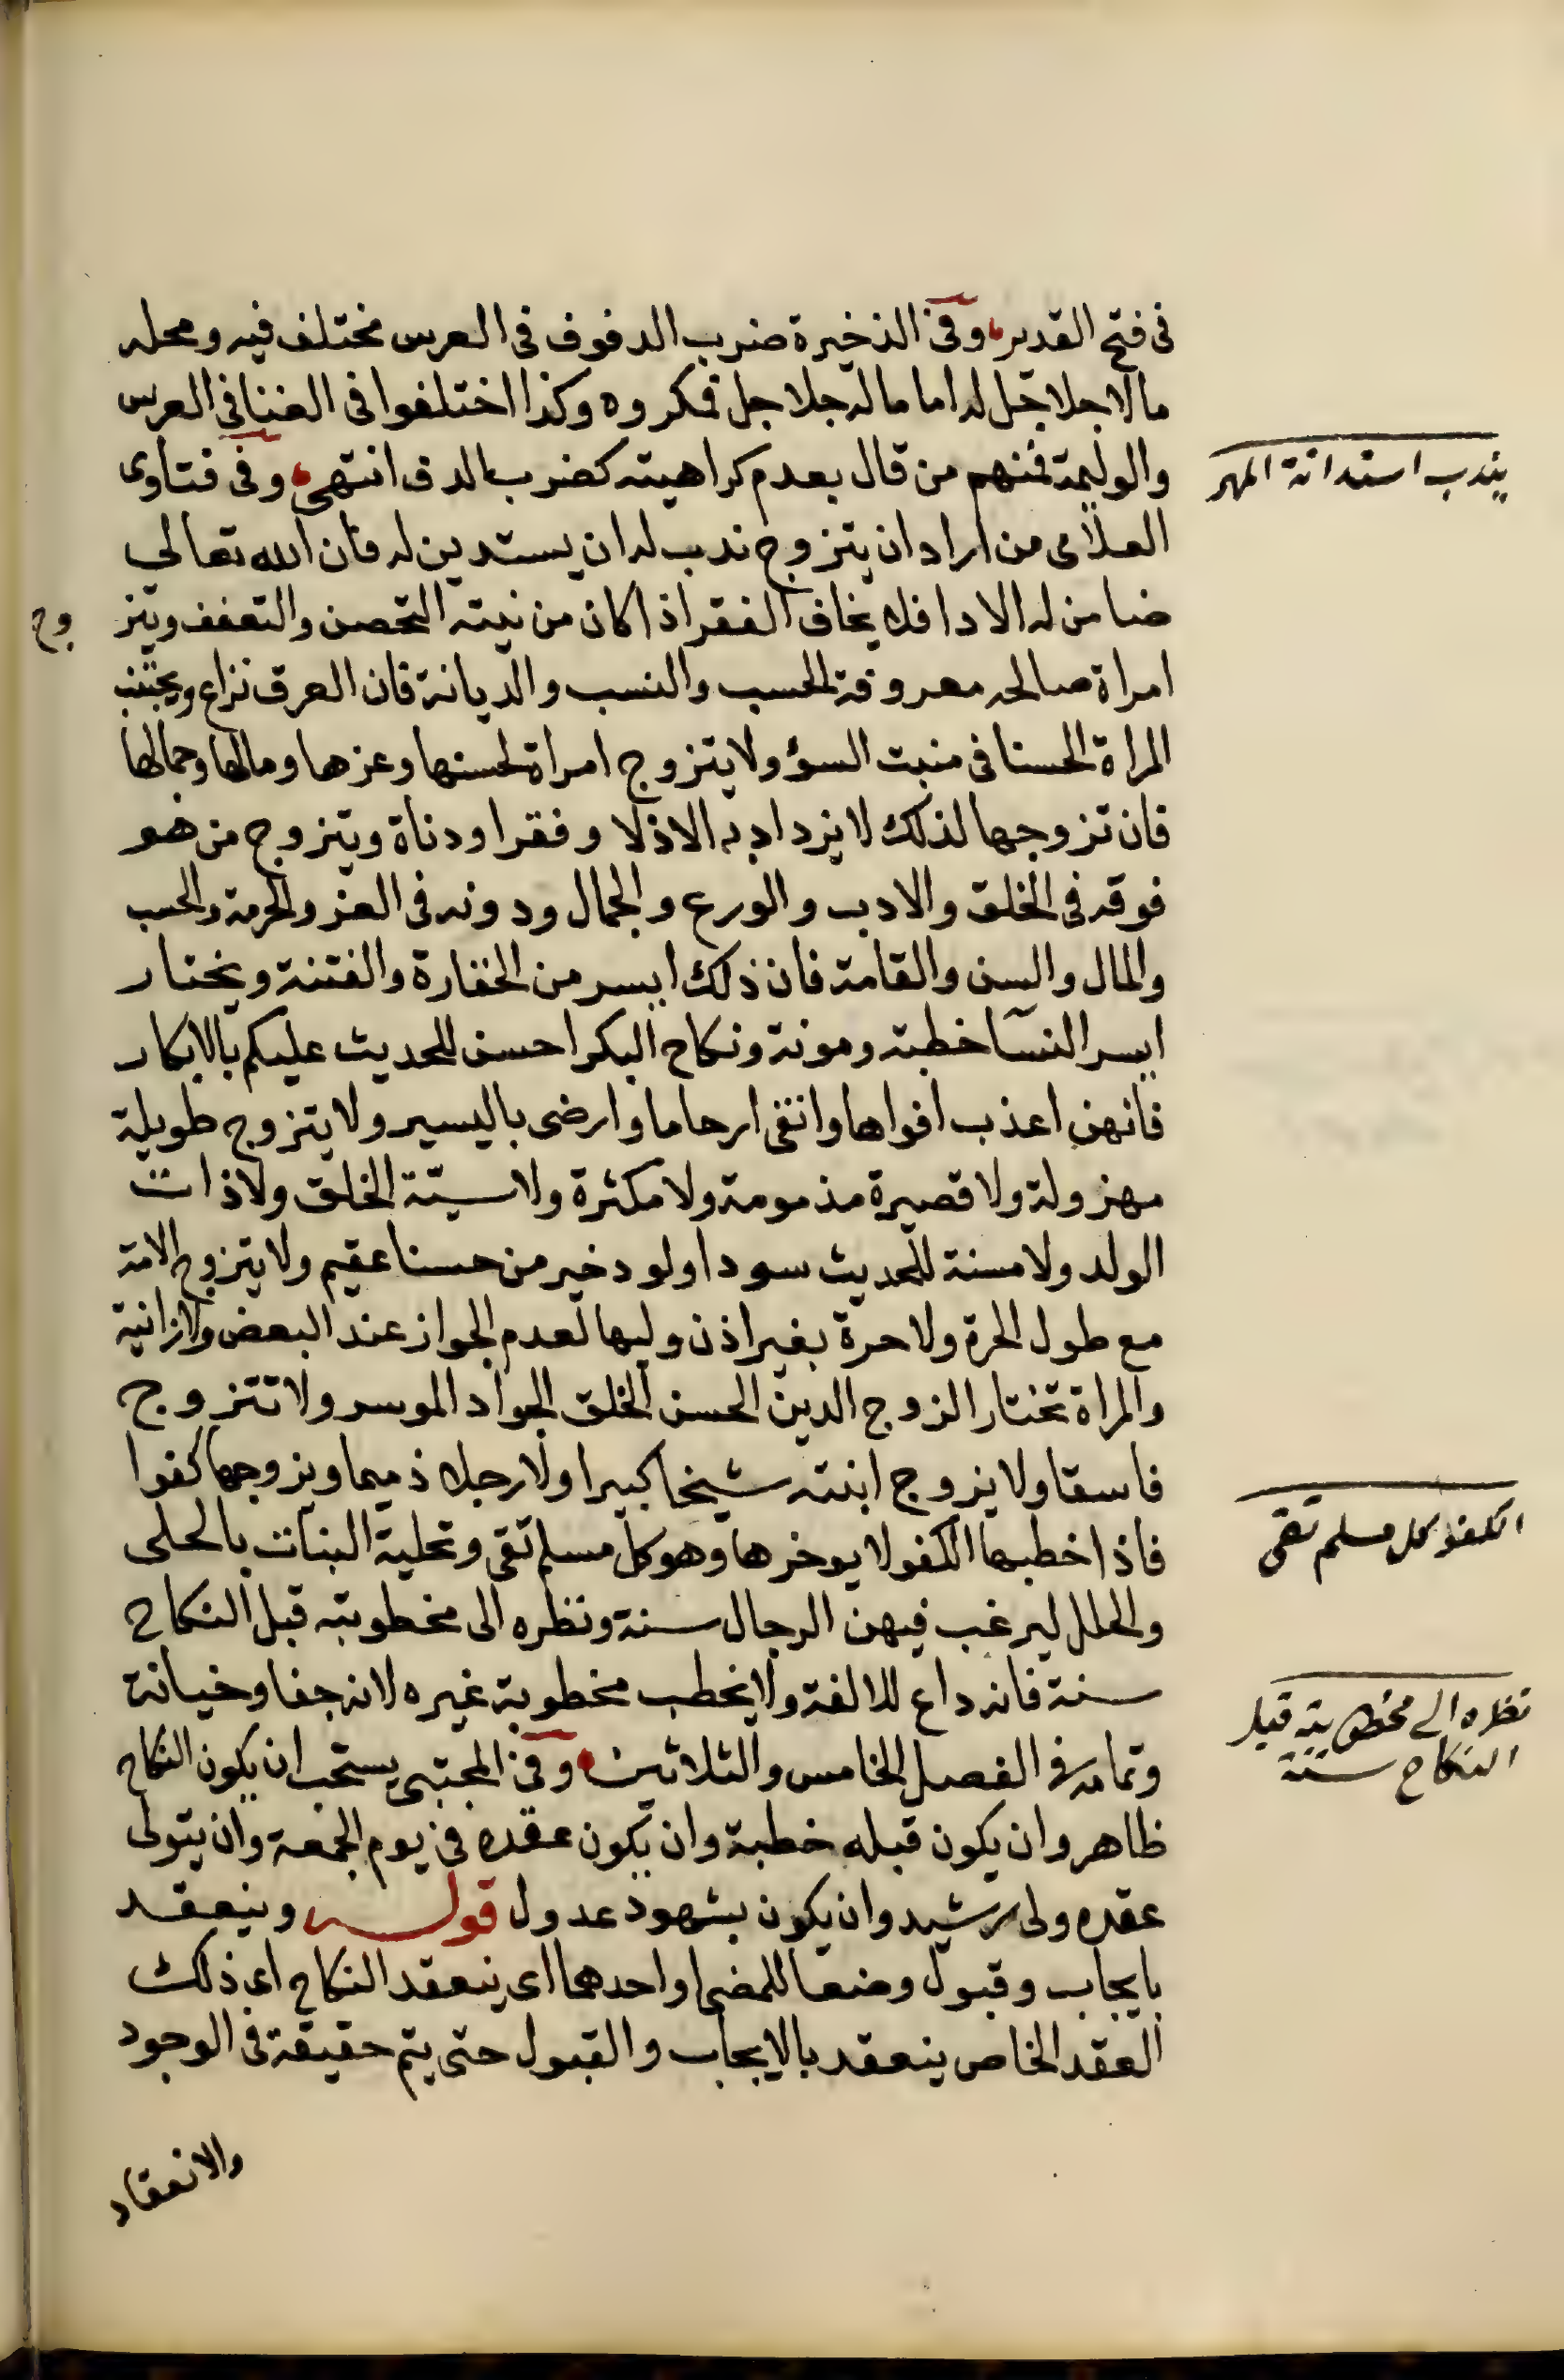 فى فتح القدير وفى الذخيرة ضرب الدفوف فى العرس مختلف فيه ومحله
مالاجلاجل له اما ماله جلاجل فمكروه وكذا اختلفوا فى الغنا فى العرس
والوليمة فمنهم من قال بعدم كراهيته كضرب الدف انتهى وفى فتاوى
يندب استدانة المهر
العلامى من اراد ان يتزوج ندب له ان يستدين له فان الله تعالى
ضامن له الادا فلا يخاف الفقر اذا كان من نيته التحصن والتعفف ويتزوج
امراة صالحه معروفة الحسب والنسب والديانة فان العرق نزاع ويجتنب
المراة الحسنا فى منبت السؤ ولا يتزوج امراة لحسنها وعزها ومالها وجمالها
فان تزوجها لذلك لا يزداد به الا ذلا وفقرا ودناة ويتزوج من هو
فوقه فى الخلق والادب والورع والجمال ودونه فى العز والحرمة والحسب
والمال والسن والقامة فان ذلك ايسر من الحقارة والفتنة ويختار
ايسر النسا خطبة ومونة ونكاح البكر احسن للحديث عليكم بالابكار
فانهن اعذب افواها وانقى ارحاما وارضى باليسير ولا يتزوج طويلة
مهزولة ولا قصيرة مذمومة ولا مكثرة ولا سيئة الخلق ولا ذات
الولد ولا مسنة للحديث سودا ولود خير من حسنا عقيم ولا يتزوج الامة
مع طول الحرة ولا حرة بغير اذن وليها لعدم الجواز عند البعض ولا زانية
والمراة تختار الزوج الدين الحسن الخلق الجواد الموسر ولا تتزوج
فاسقا ولا يزوج ابنته شيخا كبيرا ولا رجلا ذميما ويزوجها كفوا
فاذا خطبها الكفو لا يوخرها وهو كل مسلم تقى وتحلية البنات بالحلى
الكفو كل مسلم تقى
والحلل ليرغب فيهن الرجال سنة ونظره الى مخطوبته قبل النكاح
سنة فانه داع للالفة ولا يخطب مخطوبة غيره لانه جفا وخيانة
نظره الى مخطوبته قبل
النكاح سنة
وتمامه فى الفصل الخامس والثلاثين وفى المجتبى يستحب ان يكون النكاح
ظاهر وان يكون قبله خطبة وان يكون عقده فى يوم الجمعة وان يتولى
عقده ولى رشيد وان يكون بشهود عدول قوله وينعقد
بايجاب وقبول وضعا للمضى او احدهما اى ينعقد النكاح اى ذلك
العقد الخاص ينعقد بالايجاب والقبول حتى يتم حقيقة فى الوجود
والانعقاد